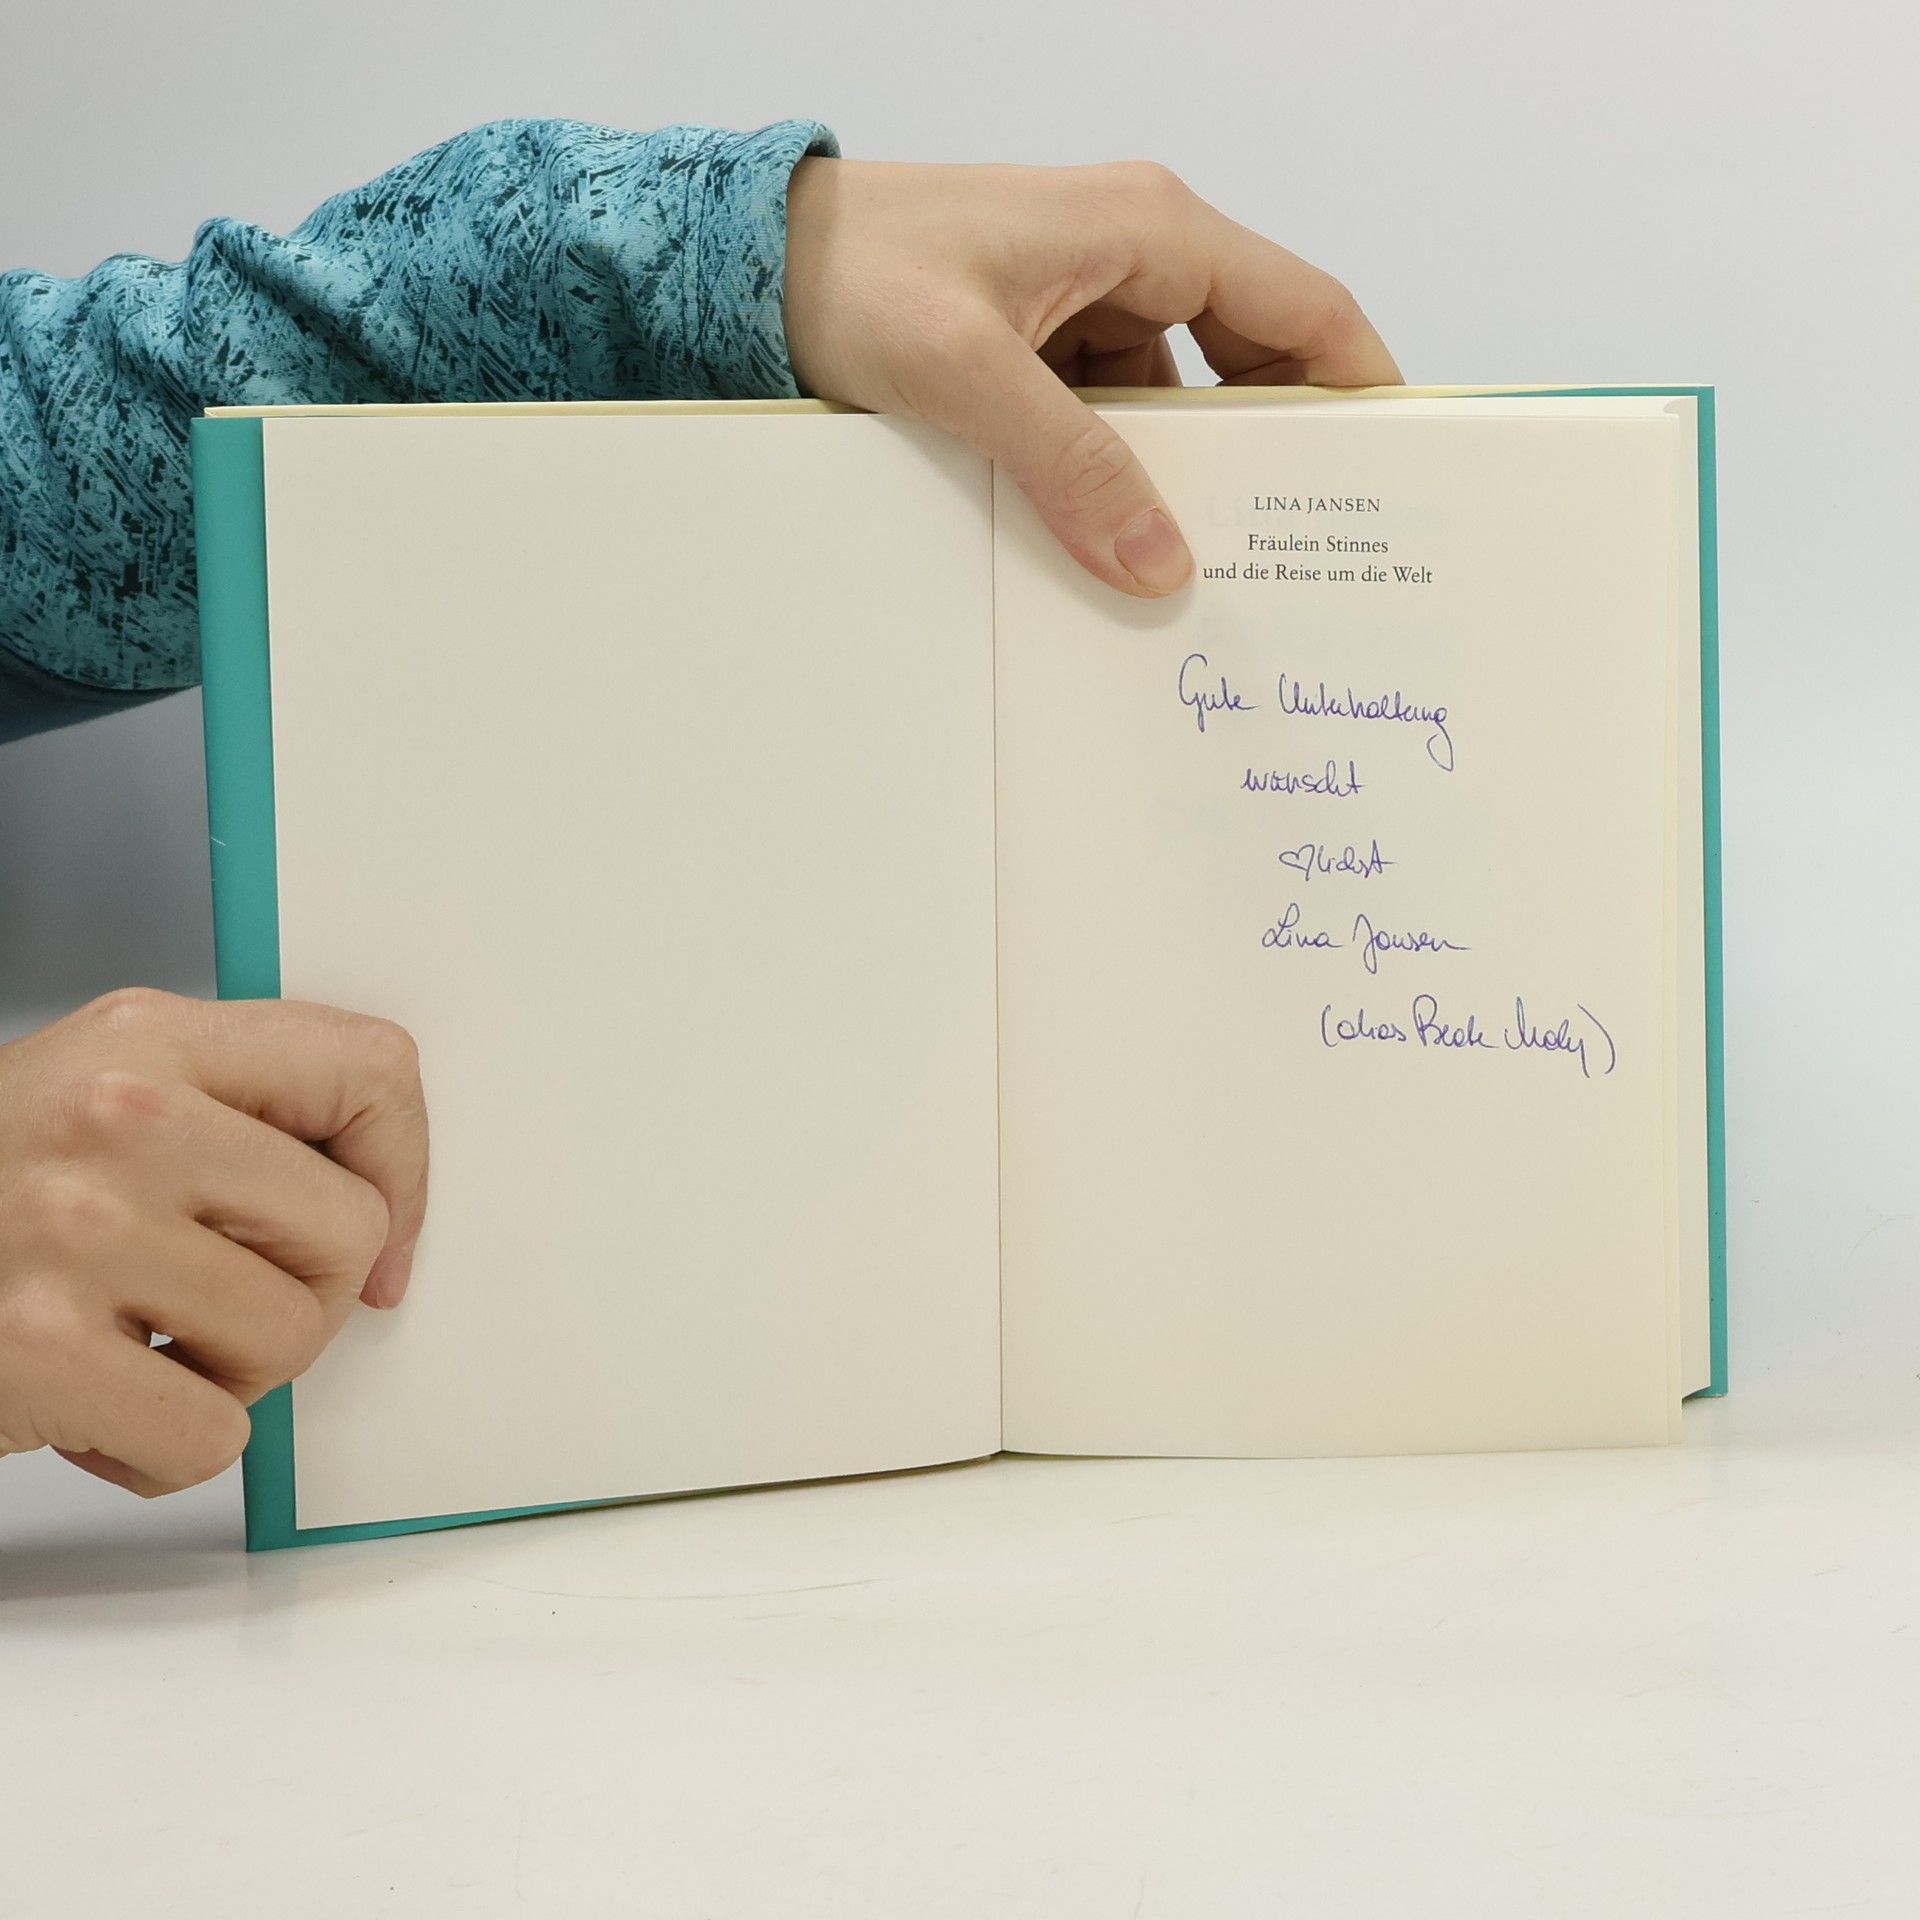 LINA JANSEN
Fräulein Stinnes
und die Reise um die Welt
Gute Unterhaltung
wünscht
♡lichst
Lina Jansen
(alias Beate Maly)